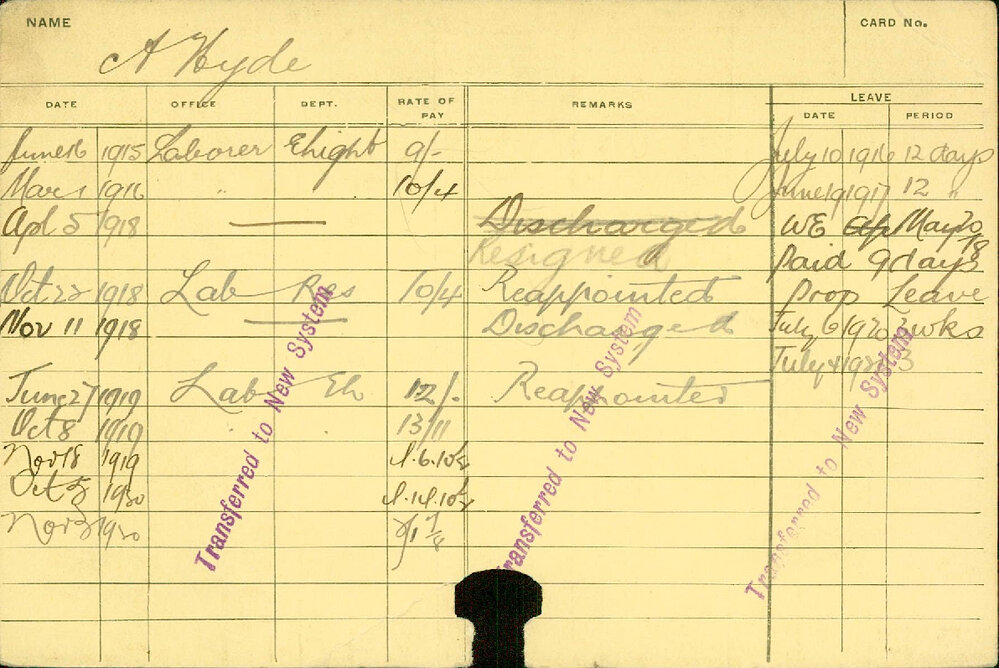 NAME CARD No.
A Hyde
DATE OFFICE DEPT. RATE OF PAY REMARKS LEAVE
DATE PERIOD
June 16 1915 Laborer Ehight 9/- July 10 1916 12 days
Mar 1 1916 " 10/4 June 19 1917 12 "
Apl 5 1918 — Discharged WE May 20
Resigned 18 Paid 9 days
Oct 22 1918 Lab Res 10/4 Reappointed Prop Leave
Nov 11 1918 — Discharged July 6 1920 2 wks
July 4 3
June 27 1919 Lab Eh 12/- Reappointed
Oct 8 1919 13/11
Nov 18 1919
Oct 1920
Nov 1920
Transferred to New System
Transferred to New System
Transferred to New System